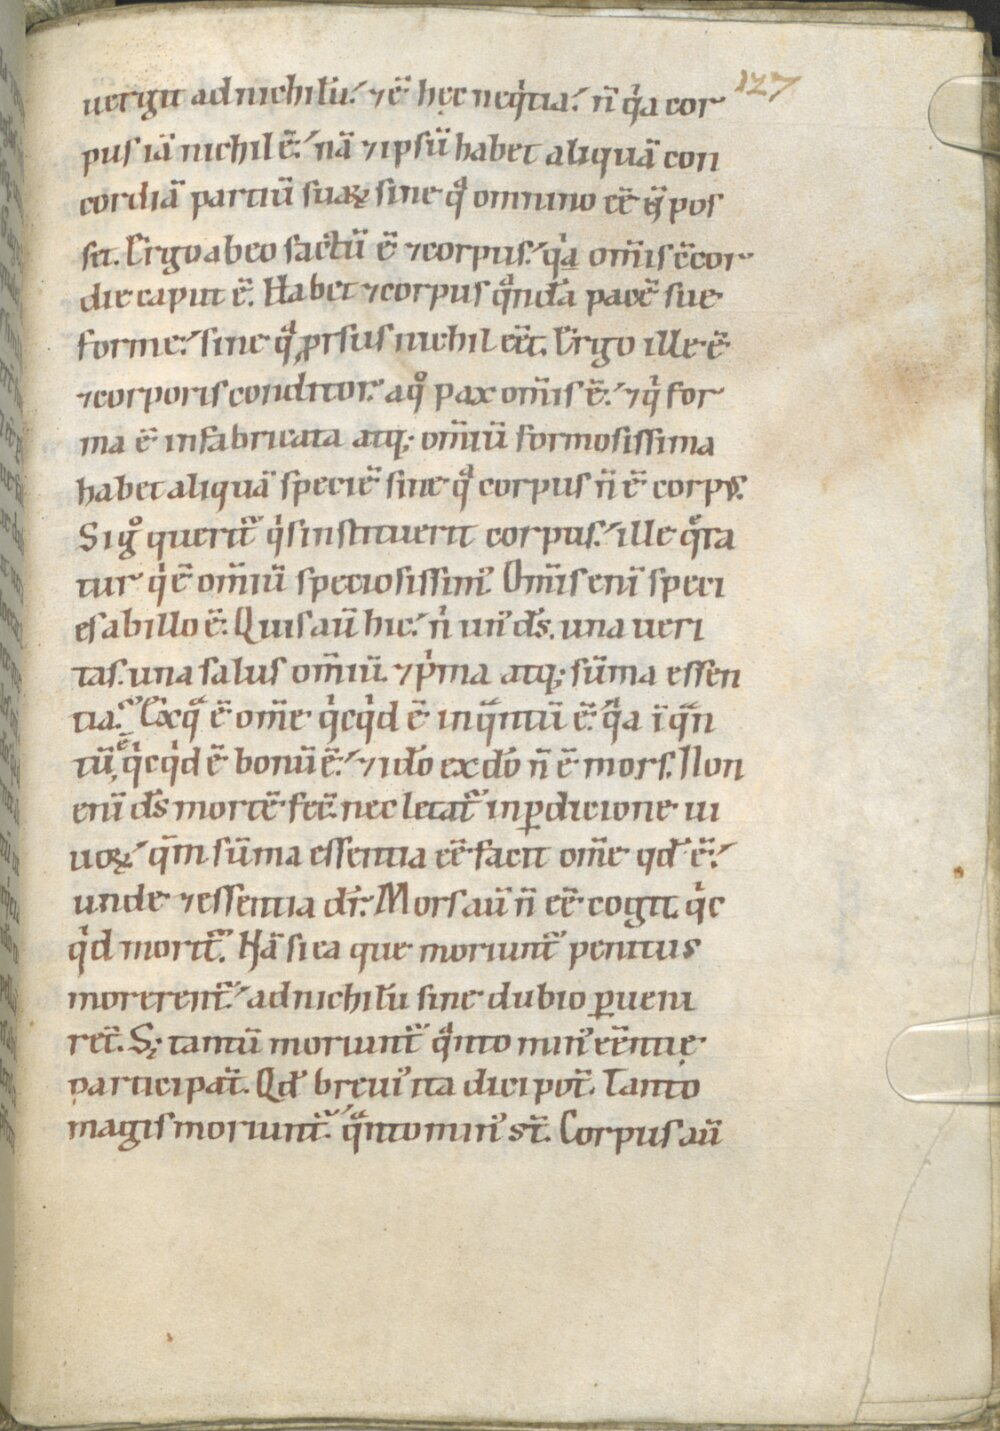 127
uergit ad nichilū. ⁊ ē hęc neq̍tia. n̄ q̍a cor
pus iā nichil ē. nā ⁊ ipsū habet aliquā con
cordiā partiū suaꝝ sine qͣ omnino eē n̄ pos
set. Ergo ab eo factū ē ⁊ corpus. q̍a om̄is ꝯcor
die caput ē. Habet ⁊ corpus qͣndā pacē sue
forme. sine qͣ ꝓrsus nichil eēt. Ergo ille ē
⁊ corporis conditor. a qͦ pax om̄is ē. ⁊ q̍ for
ma ē infabricata atq; om̄iū formosissima
habet aliquā speciē sine qͣ corpus n̄ ē corpꝰ.
Si gͦ querit̄ q̍s instituerit corpus. ille qͣra
tur q̍ ē om̄iū speciosissimꝰ. Om̄is enī speci
es ab illo ē. Quis aū hic. n̍ unꝰ d̄s. una ueri
tas. una salus om̄iū. ⁊ p̍ma atq; sūma essen
tia. Ex qͣ ē om̄e q̍cq̍d ē in qͣntū ē. q̍a īqͣn
tū ē q̍cq̍d ē bonū ē. ⁊ ido ex do n̄ ē mors. Non
enī d̄s mortē fec̄. nec letat̄ in ꝑdicione ui
uoꝝ. qm̄ sūma essentia eē facit om̄e qd̄ ē.
unde ⁊ essentia dr̄. Mors aū n̄ eē cogit q̍c
q̍d morit̄. Nā si ea que moriunt̄ penitus
morerent̄. ad nichilū sine dubio ꝑueni
rēt. Sꝫ tantū moriunt̄ qͣnto minꝰ eēntię
participāt. Qd̄ breuiꝰ ita dici pot̄. Tanto
magis moriunt̄. qͣnto minꝰ st̄. Corpus aū